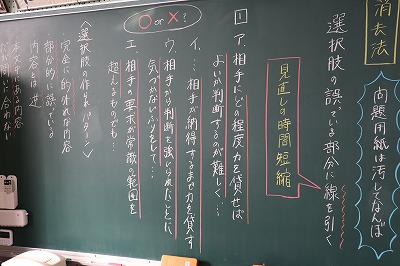 消去法
問題用紙は汚してなんぼ
選択肢の誤っている部分に線を引く
見直しの時間短縮
○ or ×?
1 ア、相手にどの程度力を貸せば
よいか判断するのが難しく…
イ、…相手が納得するまで力を貸す
ウ、相手から判断を強いられたことに
気づかないふりをして…
エ、相手の要求が常識の範囲を
超えるものでも…
〈選択肢の作られ方パターン〉
・完全に的外れな内容
・部分的に誤っている
・内容とは逆
・本文にある内容
だが問いに合わない